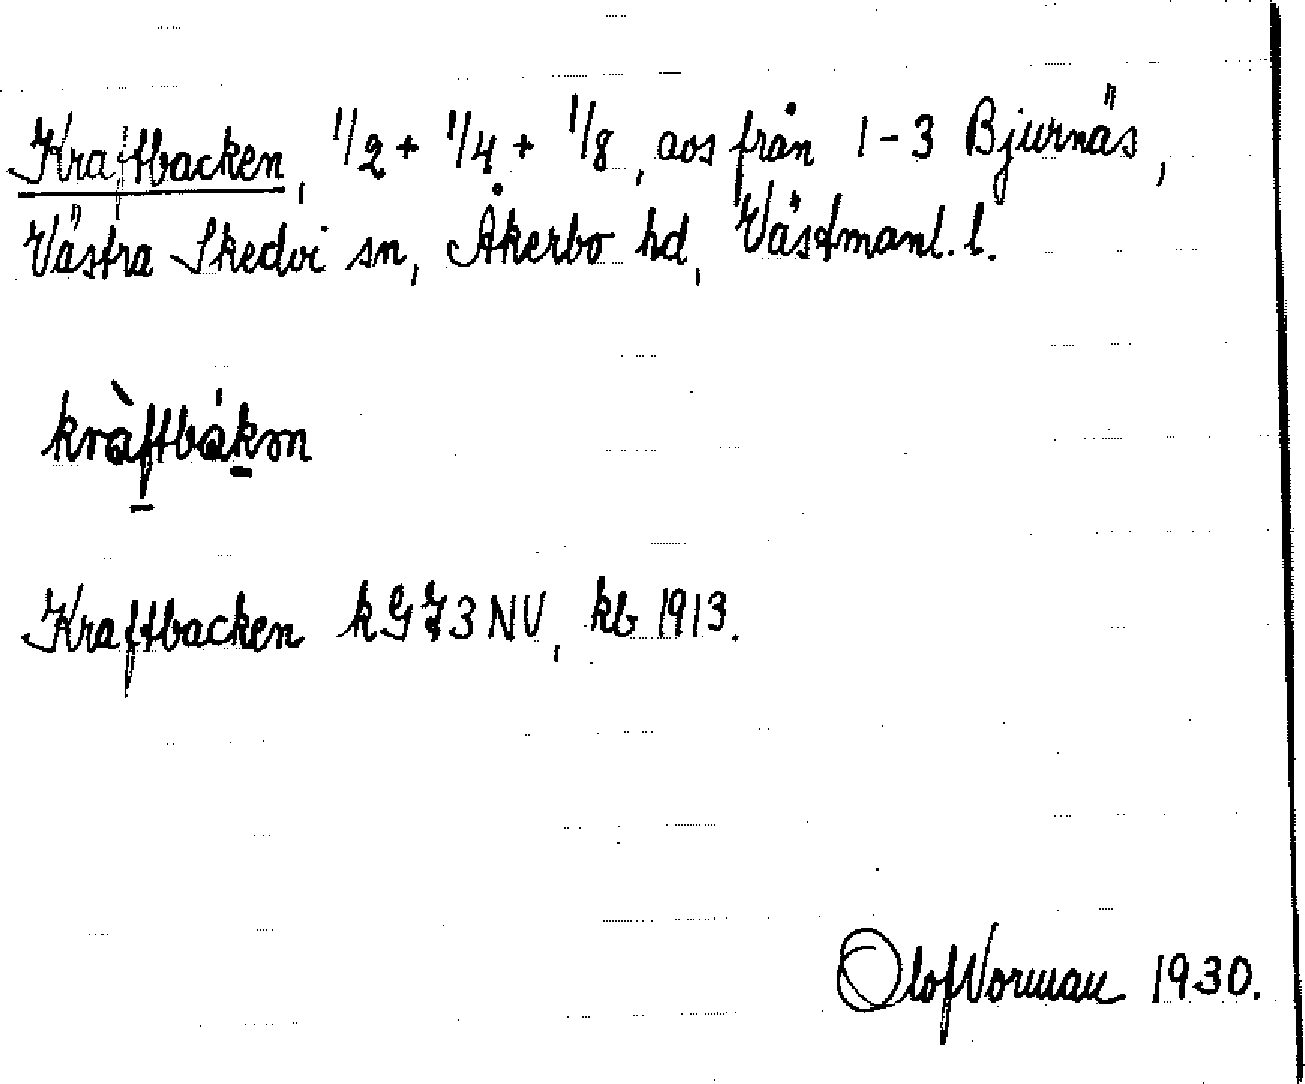 Kraftbacken, 1/2 + 1/4 + 1/8, aos från 1-3 Bjurnäs,
Västra Skedvi sn, Åkerbo hd, Västmanl. l.
kràftbákən
Kraftbacken kGJ3NV, kb 1913.
Olof Norman 1930.